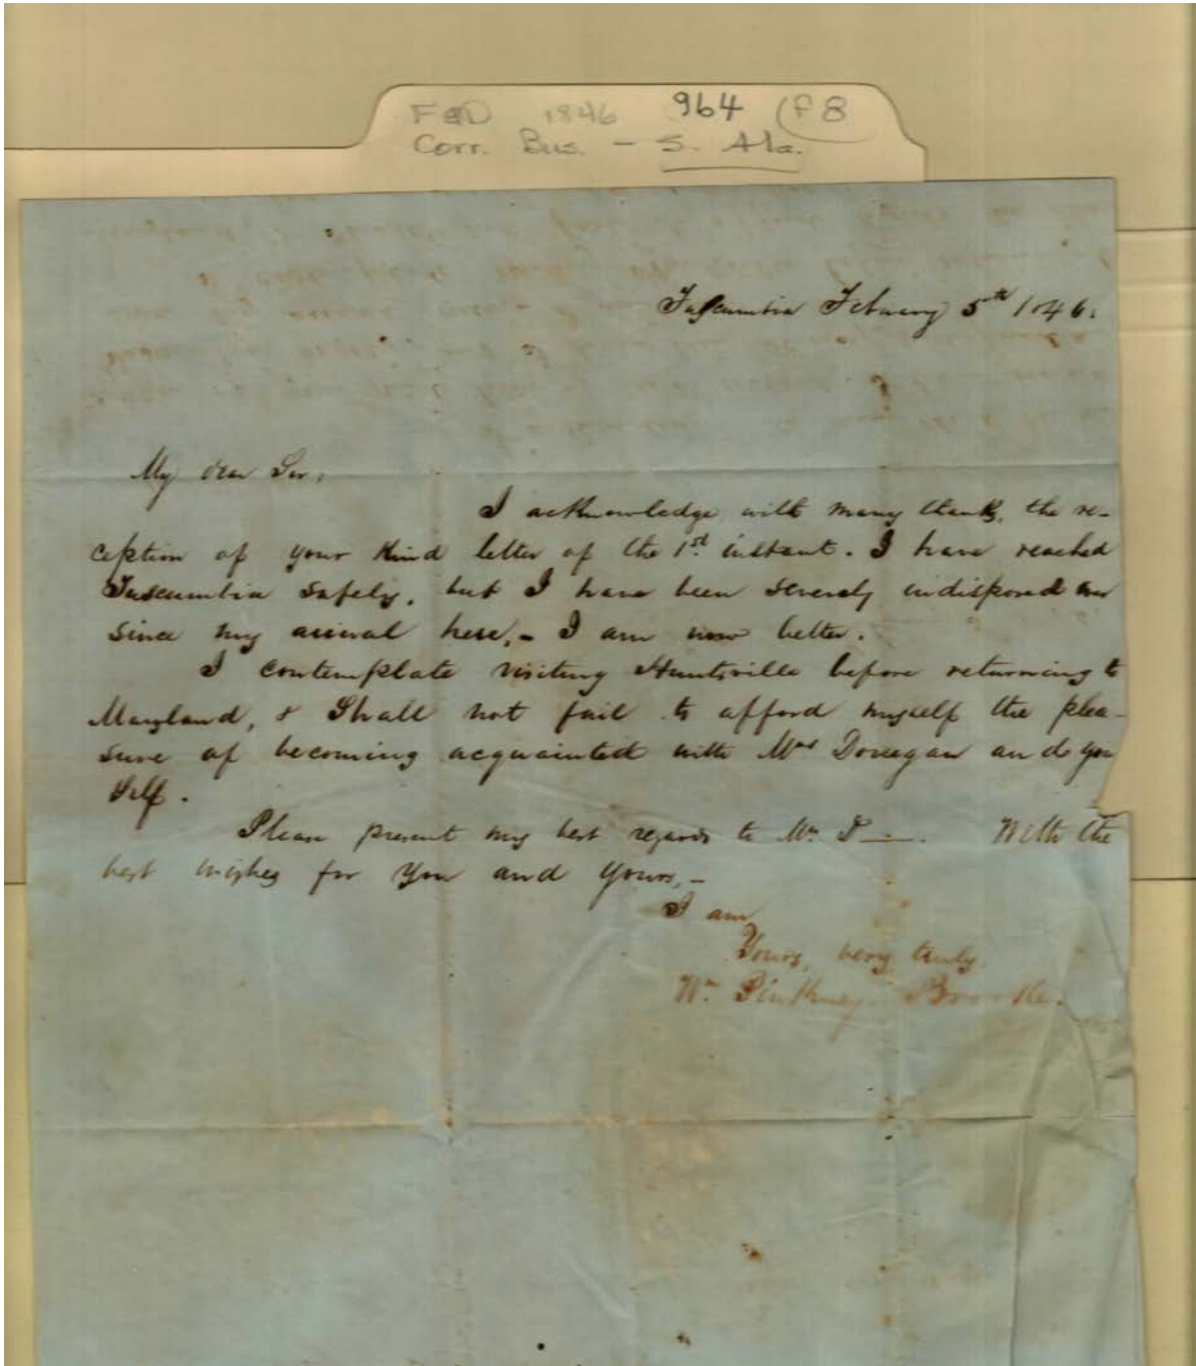 F&D 1846 964 (F8
Corr. Bus. - S. Ala.
Tuscumbia February 5th 1846.
My dear Sir,
I acknowledge with many thanks, the re-
ception of your kind letter of the 1st instant. I have reached
Tuscumbia safely, but I have been severely indisposed ever
since my arrival here,- I am now better.
I contemplate visiting Huntsville before returning to
Maryland, & shall not fail to afford myself the plea-
sure of becoming acquainted with Mrs Donegan and you
self.
Please present my best regards to Mr. D—. With the
best wishes for you and yours,-
I am
Yours, very truly
Wm Pinkney Brooke.